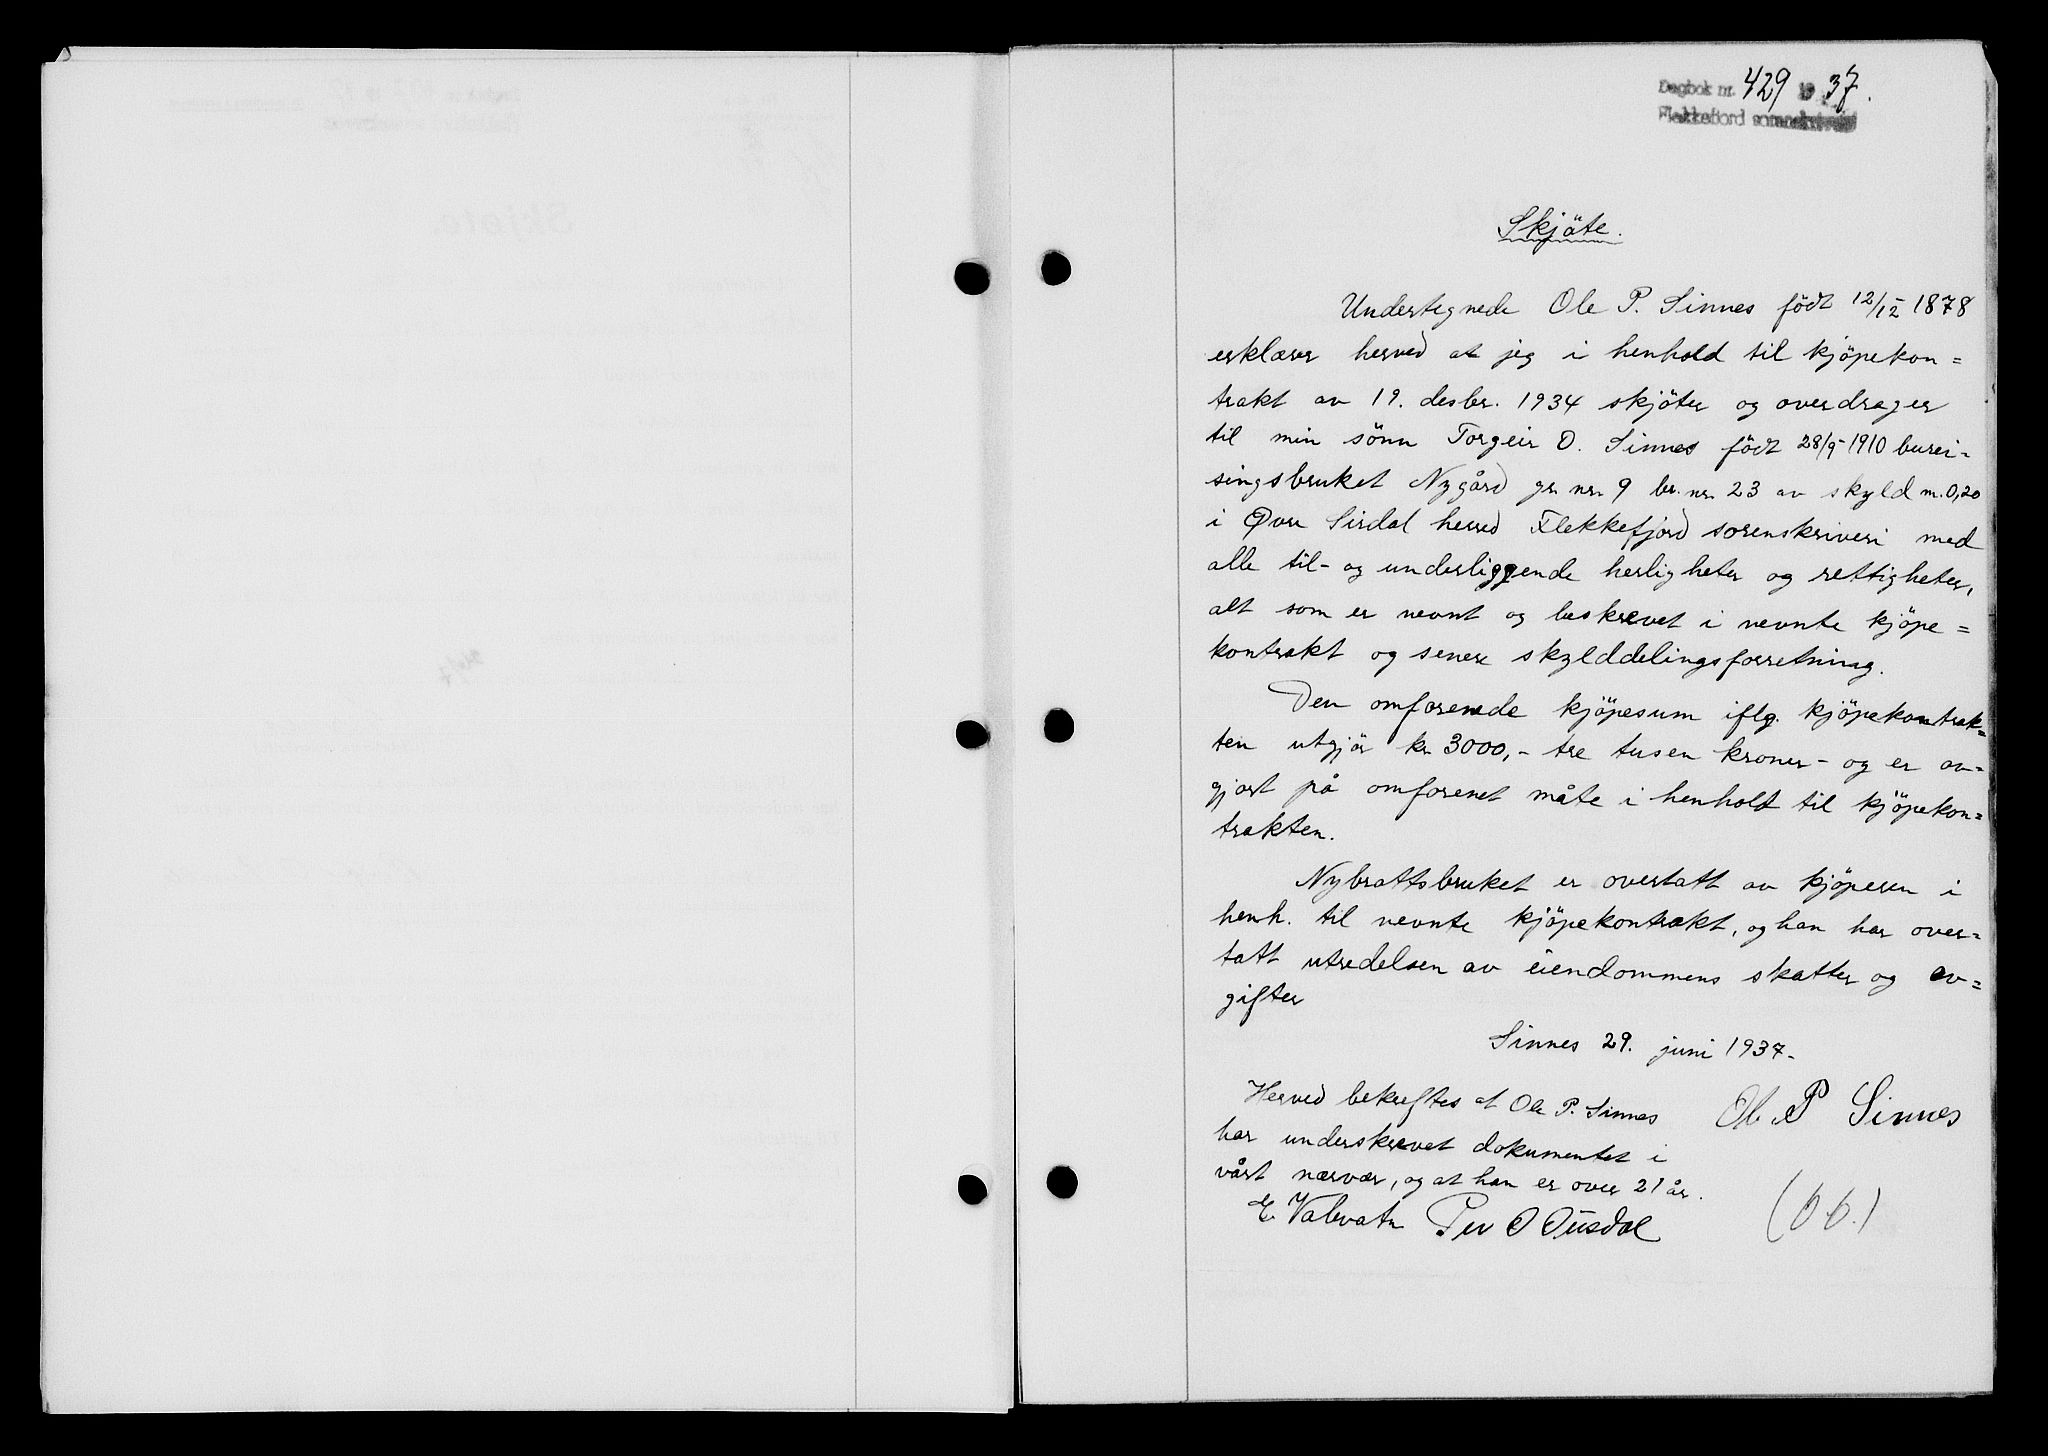 Dagbok nr. 429 19 37.
Flekkefjord sorenskriveri
Skjöte.
Undertegnede Ole P. Sinnes födt 12/12 1878
erklærer herved at jeg i henhold til kjöpekon=
trakt av 19. desbr. 1934 skjöter og overdrager
til min sönn Torgeir O. Sinnes födt 28/9-1910 burei=
singsbruket Nygård gr. nr. 9 br. nr. 23 av skyld m. 0,20
i Øvre Sirdal herred Flekkefjord sorenskriveri med
alle til- og underliggende herligheter og rettigheter,
alt som er nevnt og beskrevet i nevnte kjöpe=
kontrakt og senere skylddelingsforretning.
Den omforenede kjöpesum iflg. kjöpekontrak=
ten utgjör kr. 3000,- tre tusen kroner- og er av=
gjort på omforenet måte i henhold til kjöpekon=
trakten.
Nybrottsbruket er overtatt av kjöperen i
henh. til nevnte kjöpekontrakt, og han har over=
tatt utredelsen av eiendommens skatter og av=
gifter
Sinnes 29. juni 1937-
Herved bekreftes at Ole P. Sinnes
har underskrevet dokumentet i
vårt nærvær, og at han er over 21 år.
Ole P Sinnes
E. Valevatn Per O Ousdal